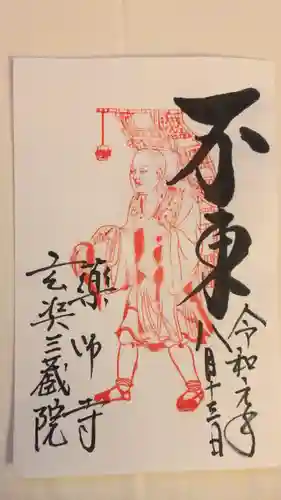 不東
令和元年
八月十三日
薬師寺
玄奘三蔵院